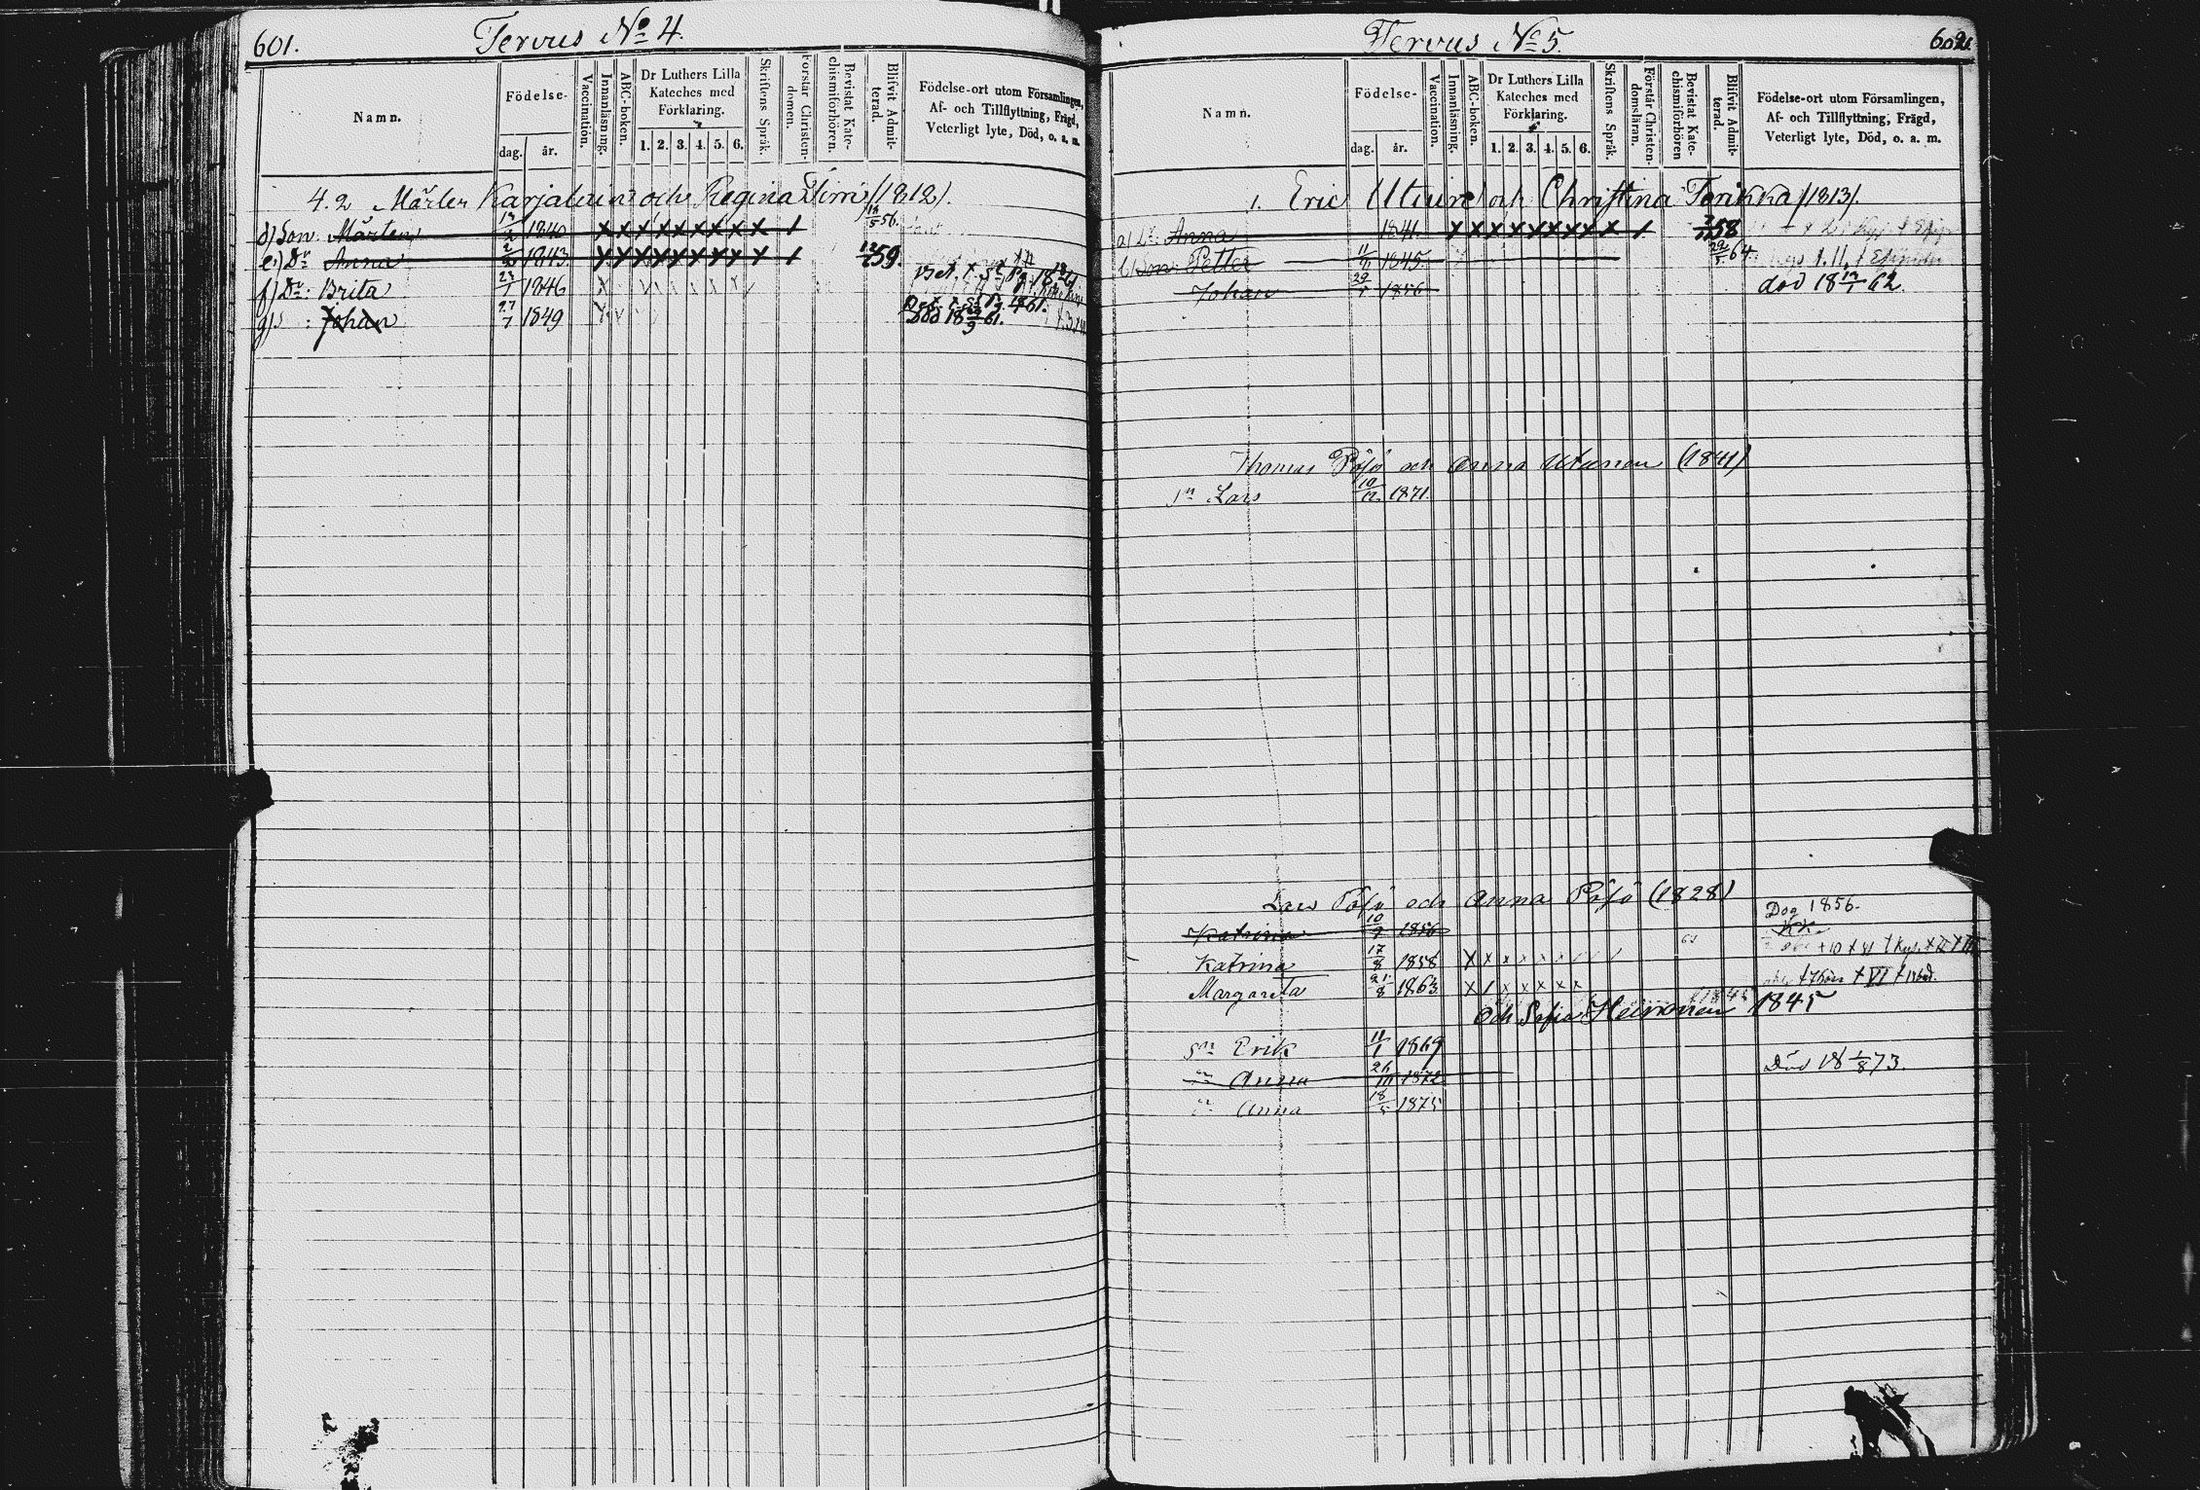 601.
Tervus No 4.
Namn.
Födelse-
dag.
år.
Vaccination.
Innanläsning.
ABC-boken.
Dr Luthers Lilla
Kateches med
Förklaring.
1. 2. 3. 4. 5. 6.
Skriftens Språk.
Förstår Christen-
domen.
Bevistat Kate-
chismiförhören.
Blifvit Admit-
terad.
Födelse-ort utom Församlingen,
Af- och Tillflyttning, Frägd,
Veterligt lyte, Död, o. a. m.
4. 2 Mårten Karjalain och Regina (1812).
d) Son: Mårten 1840 x x x x x x x x x 1 56.
e) Dr Anna 1843 x x x x x x x x x 1 59.
f) Dr: Brita 23/1 1846
g) : Johan 27/7 1849
död 18 61.
602.
Tervus No 5.
Namn.
Födelse-
dag.
år.
Vaccination.
Innanläsning.
ABC-boken.
Dr Luthers Lilla
Kateches med
Förklaring.
1. 2. 3. 4. 5. 6.
Skriftens Språk.
Förstår Christen-
domsläran.
Bevistat Kate-
chismiförhören
Blifvit Admit-
terad.
Födelse-ort utom Församlingen,
Af- och Tillflyttning, Frägd,
Veterligt lyte, Död, o. a. m.
1. Eric och Christina (1813).
a) Dr: Anna 1841. x x x x x x x x x 1 58
b) Son Petter 1845. 64
Johan 1856 död 18 62.
Thomas Pöjö och Anna Utunen (1841)
Sn Lars 10/12 1871.
Lars Pöjö och Anna Pöjö (1828)
Katrina 10/9 1856 Dog 1856.
Katrina 17/8 1858 x x x x x x
Margareta 21/8 1863 x 1 x x x x x
och Sofia Heinonen 1845
Sn Erik 11/1 1869
Anna 26 1872 Död 18 1/8 73.
Anna 18/5 1875